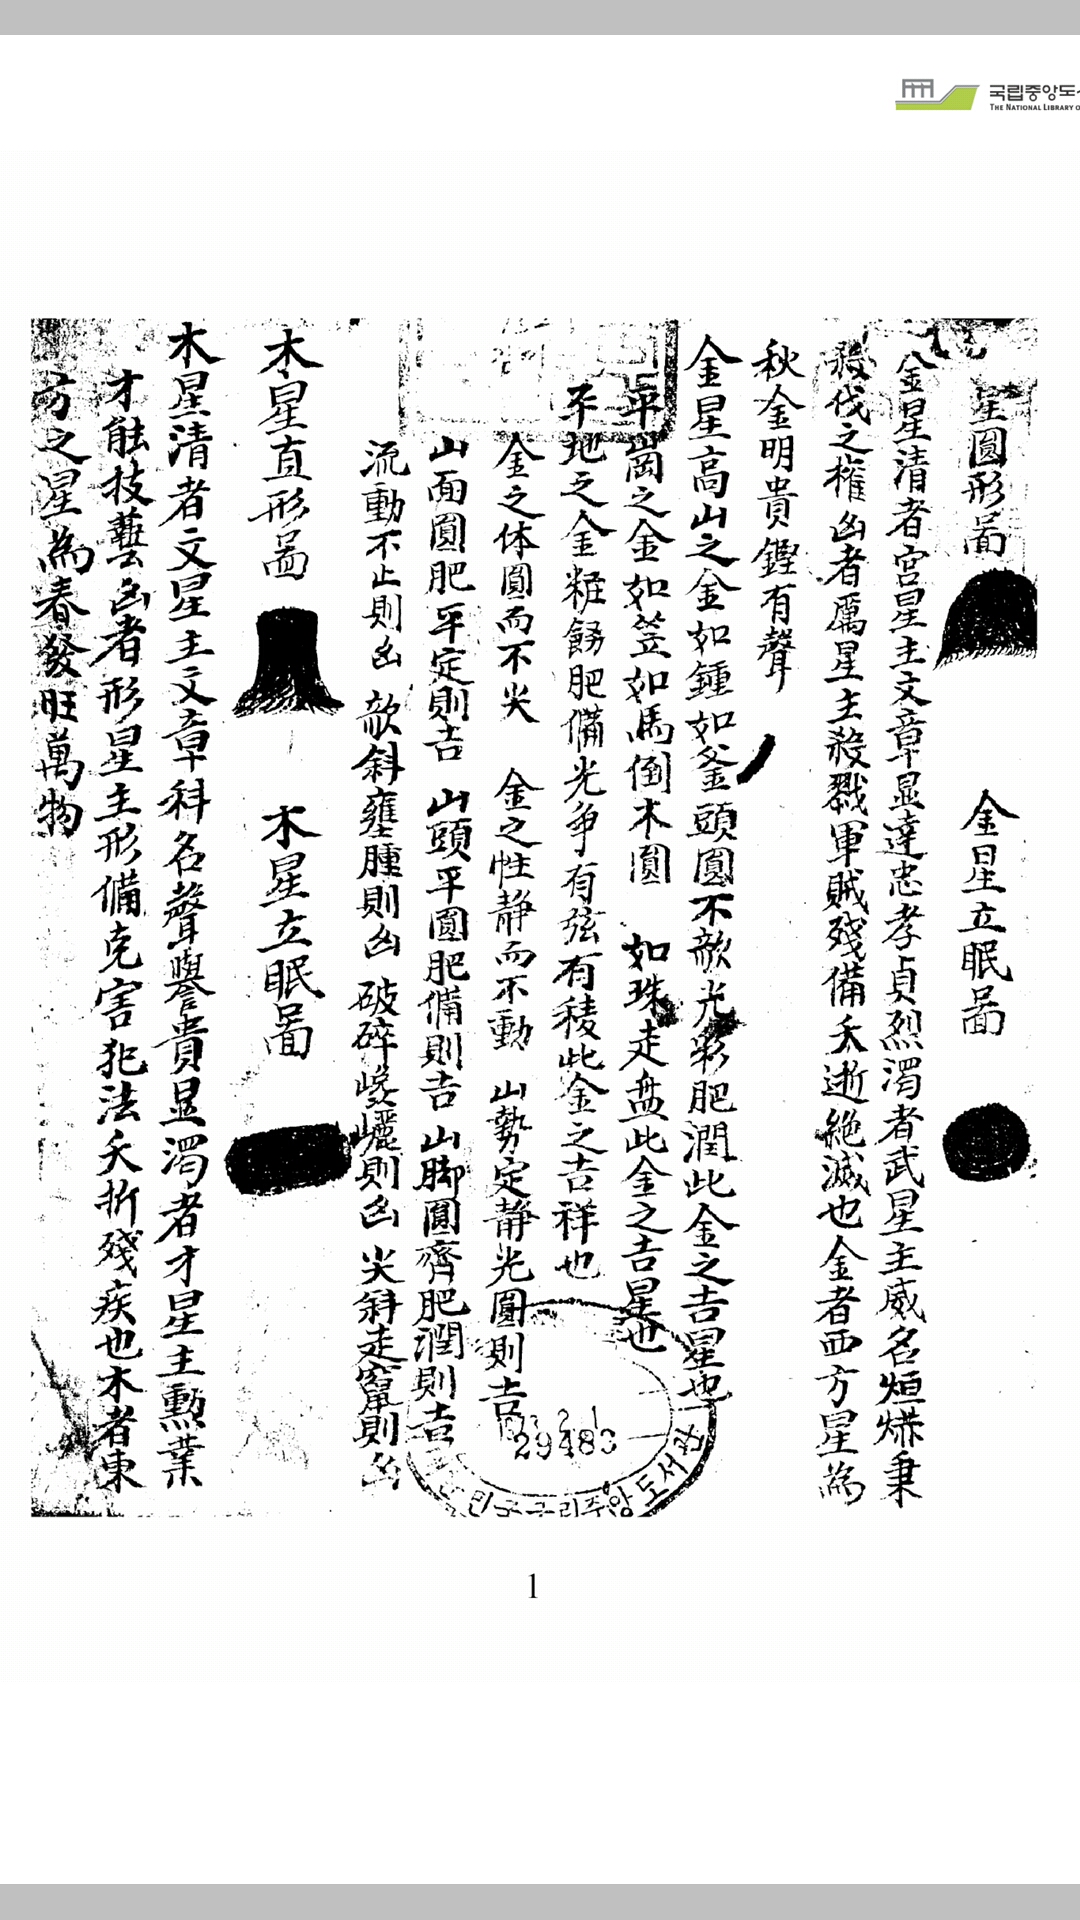 국립중앙도
THE NATIONAL LIBRARY O
星圓形啚 金星立眠啚
金星清者官星主文章显達忠孝貞烈濁者武星主威名烜爀秉
殺伐之權凶者厲星主殺戮軍賊殘備夭逝絶滅也金者西方星爲
秋金明貴鏗有聲
金星高山之金如鍾如釜頭圓不欹光彩肥潤此金之吉星也
平崗之金如笠如馬倒木圓 如珠走盘此金之吉星也
平地之金粧餙肥備光争有弦有稜此金之吉祥也
金之体圓而不尖 金之性静而不動 山勢定静光圓則吉
山面圓肥平定則吉 山頭平圓肥備則吉 山脚圓齊肥潤則吉
流動不止則凶 欹斜壅腫則凶 破碎巉巗則凶 尖斜走竄則凶
木星直形啚 木星立眠啚
木星清者文星主文章科名聲譽貴显濁者才星主勲業
才能技藝凶者形星主形備克害犯法夭折殘疾也木者東
方之星爲春發旺萬物
29483
도서관
1